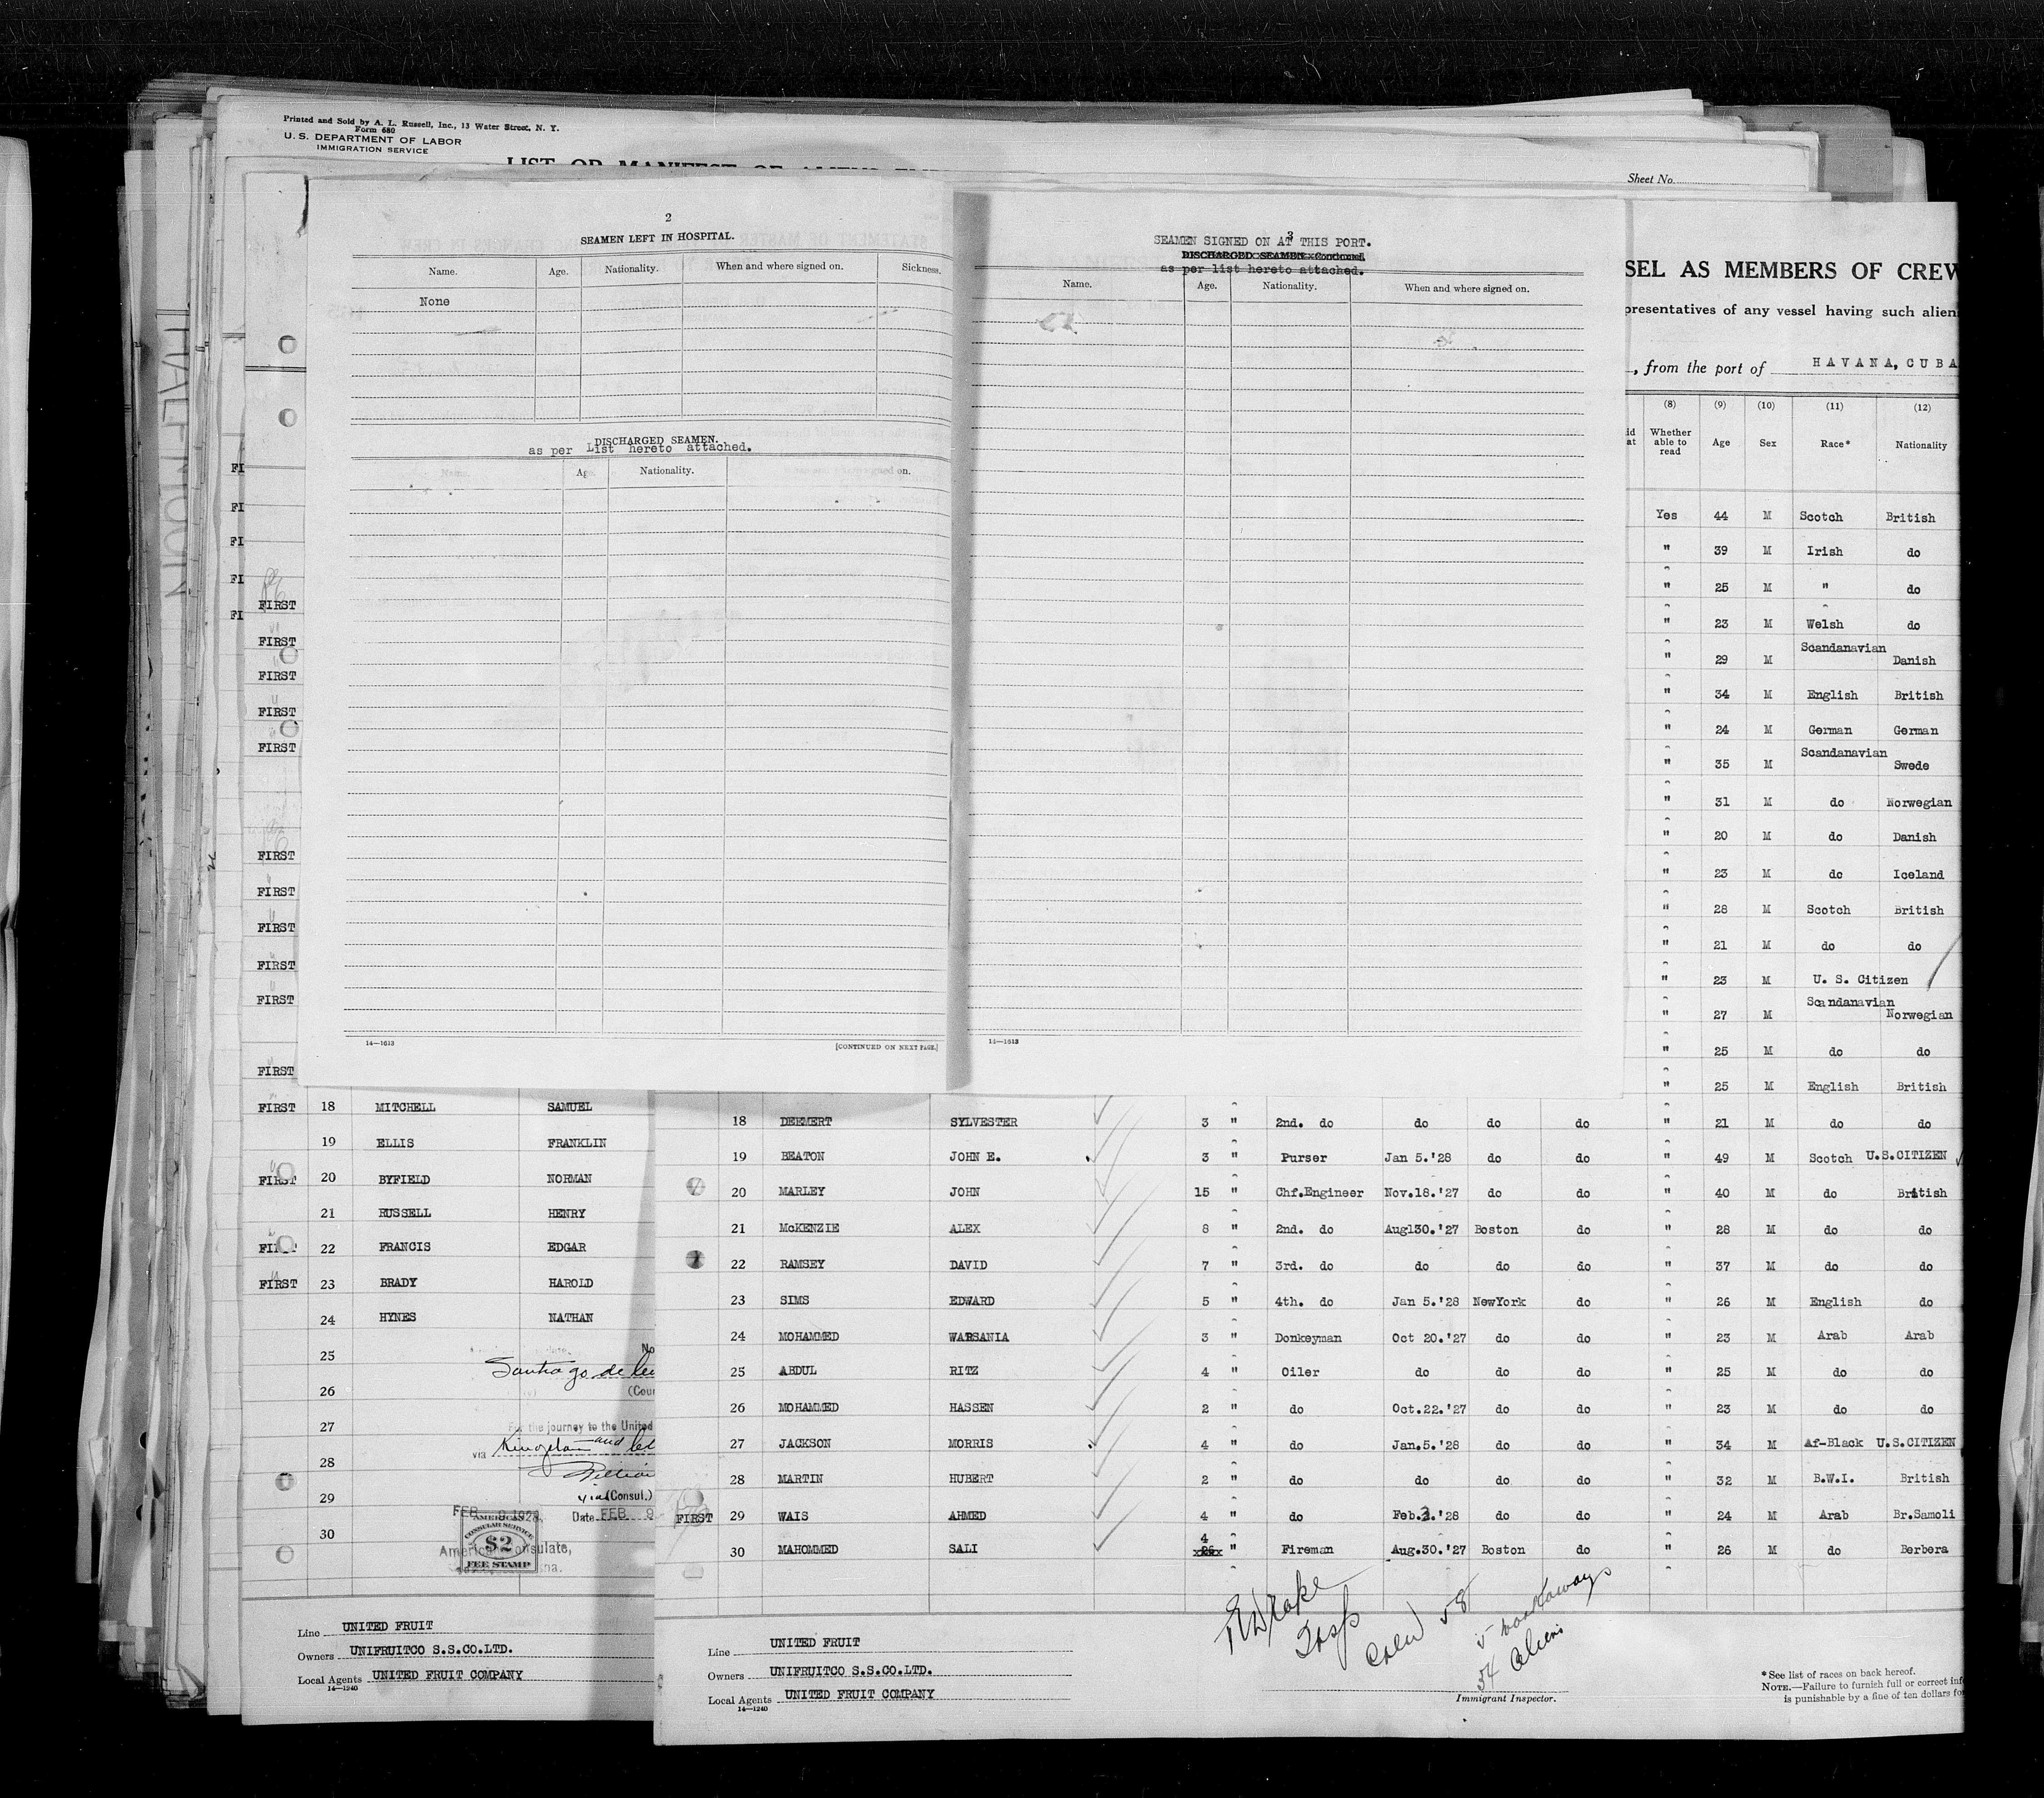 Printed and Sold by A. L. Russell, Inc., 13 Water Street, N. Y.
Form 680
U. S. DEPARTMENT OF LABOR
IMMIGRATION SERVICE
LIST OR MANIFEST OF ALIENS
Sheet No.
2
SEAMEN LEFT IN HOSPITAL.
Name. Age. Nationality. When and where signed on. Sickness.
None
DISCHARGED SEAMEN.
as per List hereto attached.
Name. Age. Nationality. When and where signed on.
14—1613
[CONTINUED ON NEXT PAGE.]
3
SEAMEN SIGNED ON AT THIS PORT.
DISCHARGED SEAMEN—Continued.
as per list hereto attached.
Name. Age. Nationality. When and where signed on.
14—1613
SEL AS MEMBERS OF CREW
presentatives of any vessel having such aliens
, from the port of HAVANA, CUBA
(8) (9) (10) (11) (12)
Whether able to read Age Sex Race* Nationality
Yes 44 M Scotch British
" 39 M Irish do
" 25 M " do
" 23 M Welsh do
" 29 M Scandanavian Danish
" 34 M English British
" 24 M German German
" 35 M Scandanavian Swede
" 31 M do Norwegian
" 20 M do Danish
" 23 M do Iceland
" 28 M Scotch British
" 21 M do do
" 23 M U. S. Citizen
" 27 M Scandanavian Norwegian
" 25 M do do
" 25 M English British
FI
FI
FI
FI
FI
FIRST
FIRST
FIRST
FIRST
FIRST
FIRST
FIRST
FIRST
FIRST
FIRST
FIRST
FIRST 18 MITCHELL SAMUEL
19 ELLIS FRANKLIN
FIRST 20 BYFIELD NORMAN
21 RUSSELL HENRY
22 FRANCIS EDGAR
FIRST 23 BRADY HAROLD
24 HYNES NATHAN
25
26
27
28
29
30
No
Santiago de
(Coun
For the journey to the United
via Kingston and
(Consul.)
FEB 9 1928
Date FEB 9
AMERICAN
CONSULAR SERVICE
$2
FEE STAMP
American Consulate,
Line UNITED FRUIT
Owners UNIFRUITCO S.S.CO.LTD.
Local Agents UNITED FRUIT COMPANY
14—1240
18 DEEMERT SYLVESTER 3 " 2nd. do do do do " 21 M do do
19 BEATON JOHN E. 3 " Purser Jan 5.'28 do do " 49 M Scotch U.S.CITIZEN
20 MARLEY JOHN 15 " Chf.Engineer Nov.18.'27 do do " 40 M do British
21 McKENZIE ALEX 8 " 2nd. do Aug130.'27 Boston do " 28 M do do
22 RAMSEY DAVID 7 " 3rd. do do do do " 37 M do do
23 SIMS EDWARD 5 " 4th. do Jan 5.'28 NewYork do " 26 M English do
24 MOHAMMED WARSANIA 3 " Donkeyman Oct 20.'27 do do " 23 M Arab Arab
25 ABDUL RITZ 4 " Oiler do do do " 25 M do do
26 MOHAMMED HASSEN 2 " do Oct.22.'27 do do " 23 M do do
27 JACKSON MORRIS 4 " do Jan.5.'28 do do " 34 M Af-Black U.S.CITIZEN
28 MARTIN HUBERT 2 " do do do do " 32 M B.W.I. British
FIRST 29 WAIS AHMED 4 " do Feb.3.'28 do do " 24 M Arab Br.Samoli
30 MAHOMMED SALI 4 " Fireman Aug.30.'27 Boston do " 26 M do Berbera
Drake
Insp
Crew 58
5 workaways
54 Aliens
Line UNITED FRUIT
Owners UNIFRUITCO S.S.CO.LTD.
Local Agents UNITED FRUIT COMPANY
14—1240
Immigrant Inspector.
* See list of races on back hereof.
NOTE.—Failure to furnish full or correct inf
is punishable by a fine of ten dollars fo